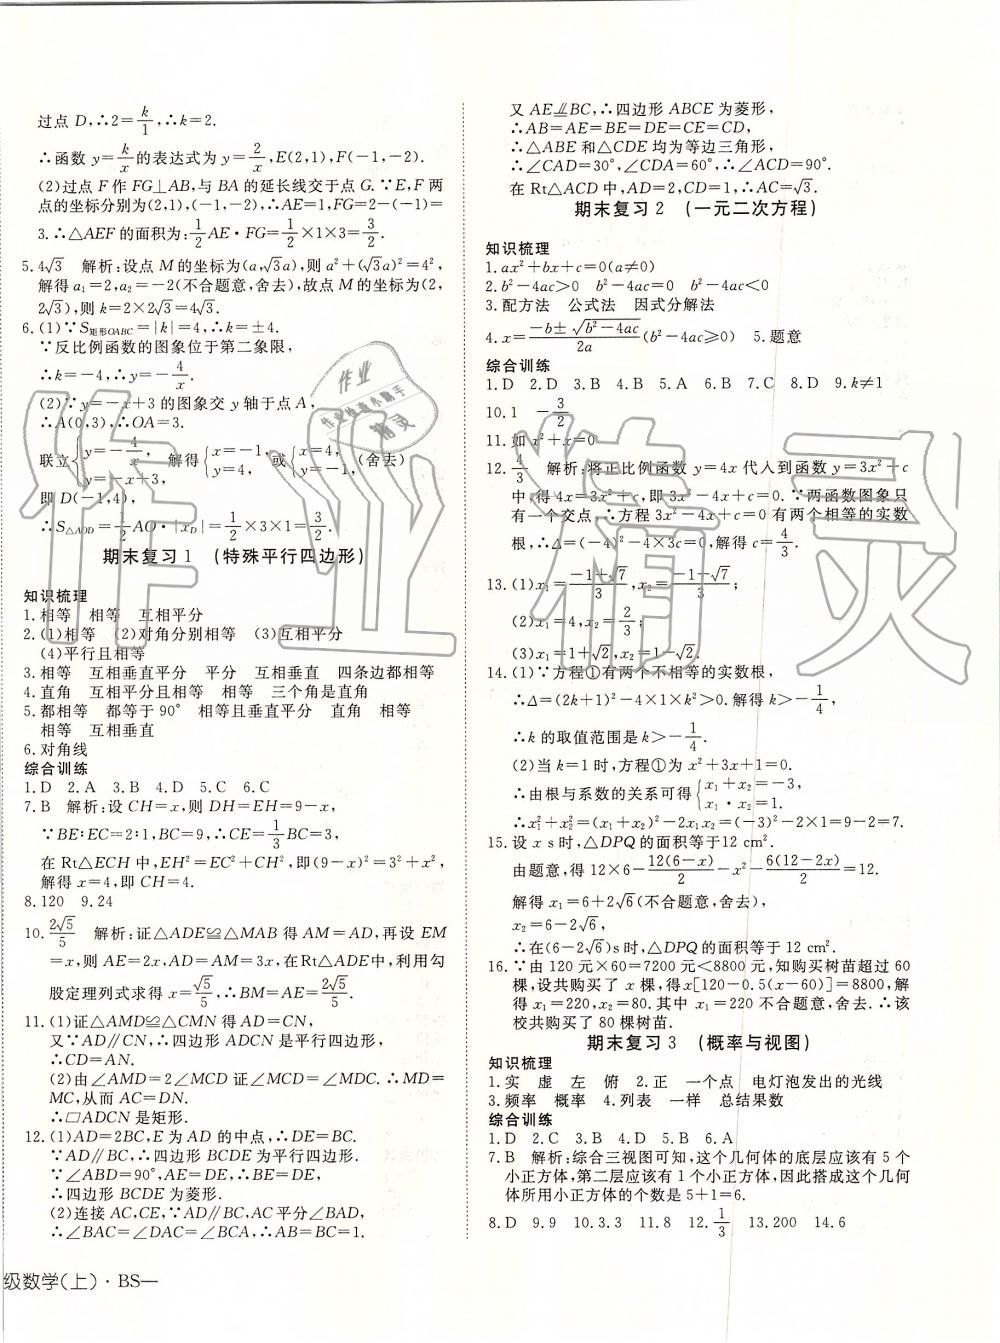 过点 D,∴2=k/1,∴k=2.
∴函数 y=k/x 的表达式为 y=2/x,E(2,1),F(-1,-2).
(2)过点 F 作 FG⊥AB,与 BA 的延长线交于点 G.∵E,F 两
点的坐标分别为(2,1),(-1,-2),∴AE=1,FG=2-(-1)=
3.∴△AEF 的面积为:1/2 AE·FG=1/2×1×3=3/2.
5.4√3 解析:设点 M 的坐标为(a,√3a),则 a²+(√3a)²=4²,
解得 a₁=2,a₂=-2(不合题意,舍去),故点 M 的坐标为(2,
2√3),则 k=2×2√3=4√3.
6.(1)∵S矩形OABC=|k|=4,∴k=±4.
∵反比例函数的图象位于第二象限,
∴k=-4,∴y=-4/x.
(2)∵y=-x+3 的图象交 y 轴于点 A,
∴A(0,3),∴OA=3.
联立{y=-4/x, y=-x+3, 解得{x=-1, y=4, 或{x=4, y=-1,(舍去)
即 D(-1,4),
∴S△AOD=1/2 AO·|xD|=1/2×3×1=3/2.
期末复习 1 (特殊平行四边形)
知识梳理
1.相等 相等 互相平分
2.(1)相等 (2)对角分别相等 (3)互相平分
(4)平行且相等
3.相等 互相垂直平分 平分 互相垂直 四条边都相等
4.直角 互相平分且相等 相等 三个角是直角
5.都相等 都等于 90° 相等且垂直平分 直角 相等
相等 互相垂直
6.对角线
综合训练
1.D 2.A 3.B 4.D 5.C 6.C
7.B 解析:设 CH=x,则 DH=EH=9-x,
∵BE∶EC=2∶1,BC=9,∴CE=1/3 BC=3,
在 Rt△ECH 中,EH²=EC²+CH²,即(9-x)²=3²+x²,
解得 x=4,即 CH=4.
8.120 9.24
10.2√5/5 解析:证△ADE≌△MAB 得 AM=AD,再设 EM
=x,则 AE=2x,AD=AM=3x,在 Rt△ADE 中,利用勾
股定理列式求得 x=√5/5,∴BM=AE=2√5/5.
11.(1)证△AMD≌△CMN 得 AD=CN,
又∵AD∥CN,∴四边形 ADCN 是平行四边形,
∴CD=AN.
(2)由∠AMD=2∠MCD 证∠MCD=∠MDC.∴MD=
MC,从而 AC=DN.
∴□ADCN 是矩形.
12.(1)AD=2BC,E 为 AD 的中点,∴DE=BC.
∵AD∥BC,∴四边形 BCDE 为平行四边形.
∵∠ABD=90°,AE=DE,∴BE=DE,
∴四边形 BCDE 为菱形.
(2)连接 AC,CE,∵AD∥BC,AC 平分∠BAD,
∴∠BAC=∠DAC=∠BCA,∴AB=BC=1.
级数学(上)·BS—
又 AE⫫BC,∴四边形 ABCE 为菱形,
∴AB=AE=BE=DE=CE=CD,
∴△ABE 和△CDE 均为等边三角形,
∴∠CAD=30°,∠CDA=60°,∴∠ACD=90°.
在 Rt△ACD 中,AD=2,CD=1,∴AC=√3.
期末复习 2 (一元二次方程)
知识梳理
1.ax²+bx+c=0(a≠0)
2.b²-4ac>0 b²-4ac=0 b²-4ac<0
3.配方法 公式法 因式分解法
4.x=(-b±√(b²-4ac))/2a(b²-4ac≥0) 5.题意
综合训练
1.D 2.D 3.B 4.B 5.A 6.B 7.C 8.D 9.k≠1
10.1 -3/2
11.如 x²+x=0
12.4/3 解析:将正比例函数 y=4x 代入到函数 y=3x²+c
中 得 4x=3x²+c,即 3x²-4x+c=0.∵两函数图象只
有一个交点,∴方程 3x²-4x+c=0 有两个相等的实数
根,∴△=(-4)²-4×3c=0,解得 c=4/3.
13.(1)x₁=(-1+√7)/3,x₂=(-1-√7)/3;
(2)x₁=4,x₂=2/3;
(3)x₁=1+√2,x₂=1-√2.
14.(1)∵方程①有两个不相等的实数根,
∴Δ=(2k+1)²-4×1×k²>0.解得 k>-1/4,
∴k 的取值范围是 k>-1/4.
(2)当 k=1 时,方程①为 x²+3x+1=0.
∴由根与系数的关系可得{x₁+x₂=-3, x₁·x₂=1.
∴x₁²+x₂²=(x₁+x₂)²-2x₁x₂=(-3)²-2×1=9-2=7.
15.设 x s 时,△DPQ 的面积等于 12 cm².
由题意,得 12×6-12(6-x)/2-x²-6(12-2x)/2=12.
解得 x₁=6+2√6(不合题意,舍去),
x₂=6-2√6,
∴在(6-2√6)s 时,△DPQ 的面积等于 12 cm².
16.∵由 120 元×60=7200 元<8800 元,知购买树苗超过 60
棵,设共购买了 x 棵,得 x[120-0.5(x-60)]=8800,解
得 x₁=220,x₂=80.其中 x₁=220 不合题意,舍去.∴该
校共购买了 80 棵树苗.
期末复习 3 (概率与视图)
知识梳理
1.实 虚 左 俯 2.正 一个点 电灯泡发出的光线
3.频率 概率 4.列表 一样 总结果数
综合训练
1.D 2.C 3.B 4.D 5.B 6.A
7.B 解析:综合三视图可知,这个几何体的底层应该有 5 个
小正方体,第二层应该有 1 个小正方体,因此搭成这个几何
体所用小正方体的个数是 5+1=6.
8.D 9.9 10.3.3 11.8 12.1/3 13.200 14.6
作业精灵
作业
作业检查小助手
精灵